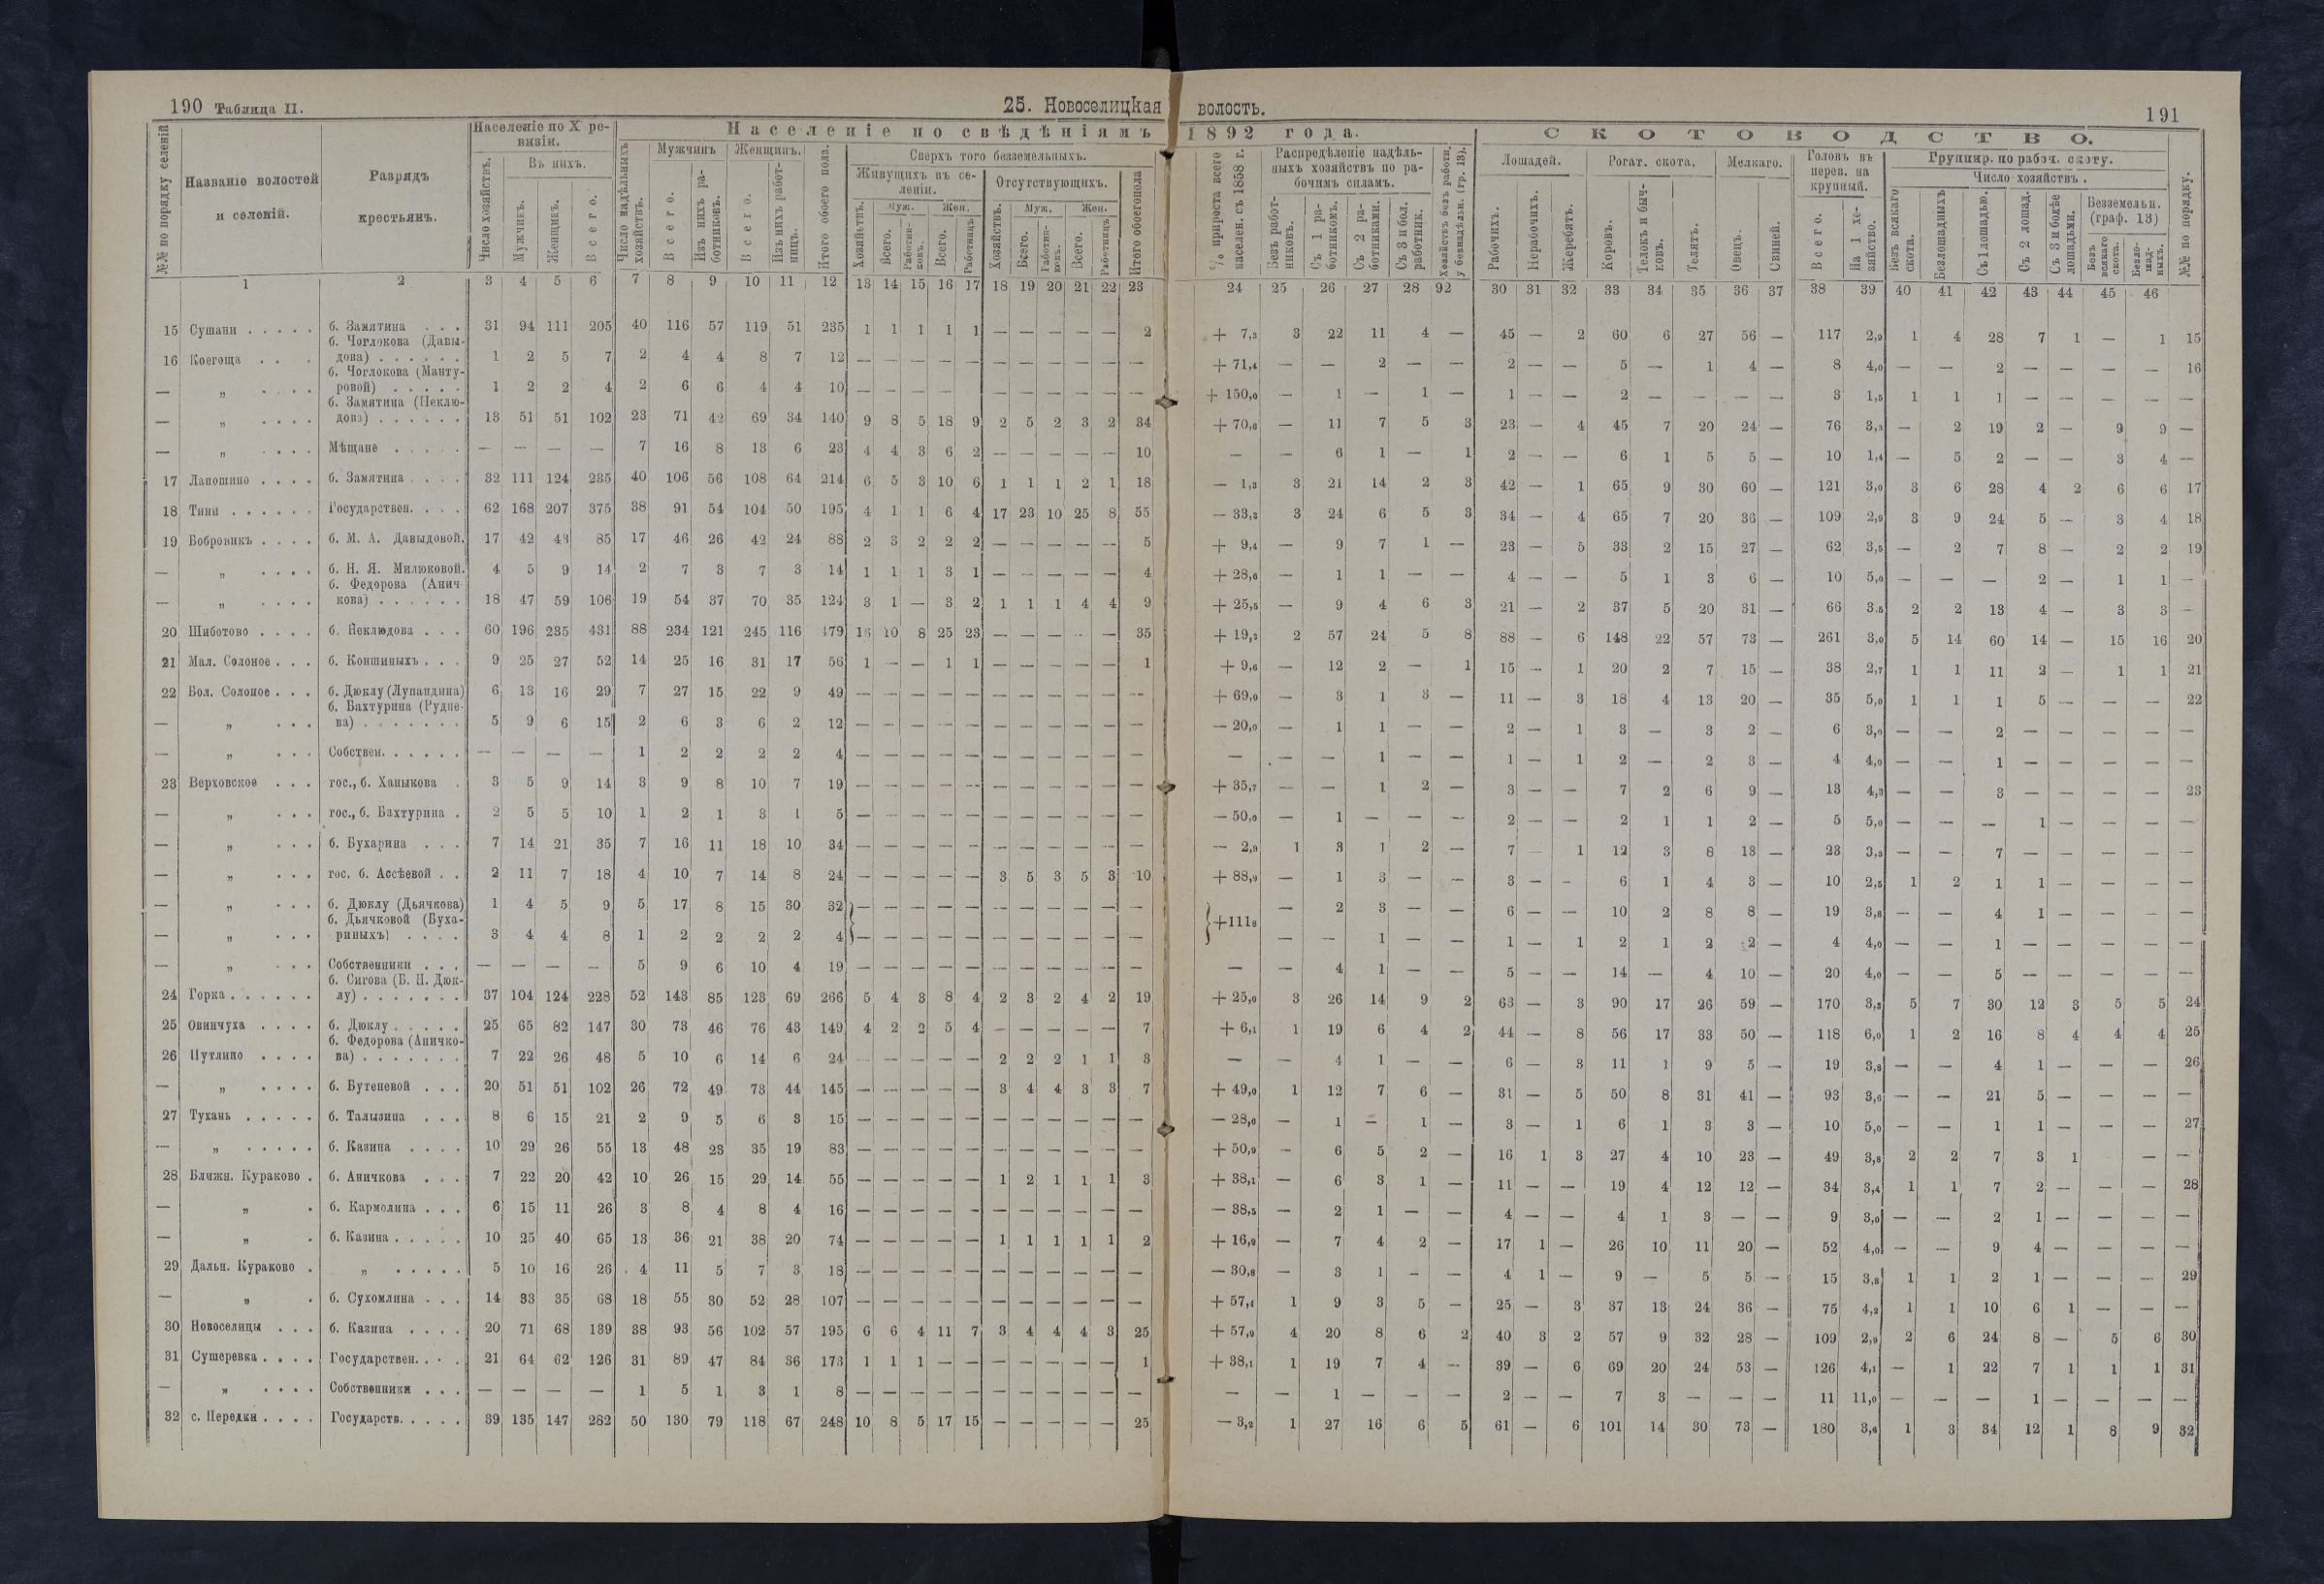 190 Таблица II.
25. Новоселицкая волость.
191
№№ по порядку селеній
Названіе волостей и селеній.
Разрядъ крестьянъ.
Населеніе по X ревизіи.
Число хозяйствъ.
Въ нихъ.
Мужчинъ.
Женщинъ.
Всего.
Населеніе по свѣдѣніямъ 1892 года.
Число надѣльныхъ хозяйствъ.
Мужчинъ
Всего.
Изъ нихъ работниковъ.
Женщинъ.
Всего.
Изъ нихъ работницъ.
Итого обоего пола.
Сверхъ того безземельныхъ.
Живущихъ въ селеніи.
Хозяйствъ.
Муж.
Всего.
Работниковъ.
Жен.
Всего.
Работницъ
Отсутствующихъ.
Хозяйствъ.
Муж.
Всего.
Работниковъ.
Жен.
Всего.
Работницъ
Итого обоего пола
% прироста всего населен. съ 1858 г.
Распредѣленіе надѣльныхъ хозяйствъ по рабочимъ силамъ.
Безъ работниковъ.
Съ 1 работникомъ.
Съ 2 работниками.
Съ 3 и бол. работник.
Хозяйствъ безъ работн. у безнадѣльн. (гр. 13).
СКОТОВОДСТВО.
Лошадей.
Рабочихъ.
Нерабочихъ.
Жеребятъ.
Рогат. скота.
Коровъ.
Телокъ и бычковъ.
Телятъ.
Мелкаго.
Овецъ.
Свиней.
Головъ въ перев. на крупный.
Всего.
На 1 хозяйство.
Группир. по рабоч. скоту.
Число хозяйствъ.
Безъ всякаго скота.
Безлошадныхъ
Съ 1 лошадью.
Съ 2 лошад.
Съ 3 и болѣе лошадьми.
Безземельн. (граф. 13)
Безъ всякаго скота.
Безлошадныхъ.
№№ по порядку.
1 2 3 4 5 6 7 8 9 10 11 12 13 14 15 16 17 18 19 20 21 22 23 24 25 26 27 28 92 30 31 32 33 34 35 36 37 38 39 40 41 42 43 44 45 46
15 Сушани . . . . . б. Замятина . . . 31 94 111 205 40 116 57 119 51 235 1 1 1 1 1 — — — — — 2 + 7,3 3 22 11 4 — 45 — 2 60 6 27 56 — 117 2,9 1 4 28 7 1 — 1 15
16 Коегоща . . . б. Чоглокова (Давыдова) . . . . . . 1 2 5 7 2 4 4 8 7 12 — — — — — — — — — — — + 71,4 — — 2 — — 2 — — 5 — 1 4 — 8 4,0 — — 2 — — — — 16
— „ . . . . б. Чоглокова (Мантуровой) . . . . . 1 2 2 4 2 6 6 4 4 10 — — — — — — — — — — — + 150,0 — 1 — 1 — 1 — — 2 — — — — 3 1,5 1 1 1 — — — —
— „ . . . . б. Замятина (Неклюдова) . . . . . . 13 51 51 102 23 71 42 69 34 140 9 8 5 18 9 2 5 2 3 2 34 + 70,6 — 11 7 5 3 23 — 4 45 7 20 24 — 76 3,3 — 2 19 2 — 9 9 —
— „ . . . . Мѣщане . . . . . — — — — 7 16 8 13 6 23 4 4 3 6 2 — — — — — 10 — — 6 1 — 1 2 — — 6 1 5 5 — 10 1,4 — 5 2 — — 3 4 —
17 Ланошино . . . . б. Замятина . . . . 32 111 124 235 40 106 56 108 64 214 6 5 3 10 6 1 1 1 2 1 18 — 1,3 3 21 14 2 3 42 — 1 65 9 30 60 — 121 3,0 3 6 28 4 2 6 6 17
18 Тини . . . . . . Государствен. . . . 62 168 207 375 38 91 54 104 50 195 4 1 1 6 4 17 23 10 25 8 55 — 33,3 3 24 6 5 3 34 — 4 65 7 20 36 — 109 2,9 3 9 24 5 — 3 4 18
19 Бобровикъ . . . . б. М. А. Давыдовой. 17 42 43 85 17 46 26 42 24 88 2 3 2 2 2 — — — — — 5 + 9,4 — 9 7 1 — 23 — 5 33 2 15 27 — 62 3,5 — 2 7 8 — 2 2 19
— „ . . . . б. Н. Я. Милюковой. 4 5 9 14 2 7 3 7 3 14 1 1 1 3 1 — — — — — 4 + 28,6 — 1 1 — — 4 — — 5 1 3 6 — 10 5,0 — — — 2 — 1 1 —
— „ . . . . б. Федорова (Аничкова) . . . . . . 18 47 59 106 19 54 37 70 35 124 3 1 — 3 2 1 1 1 4 4 9 + 25,5 — 9 4 6 3 21 — 2 37 5 20 31 — 66 3,5 2 2 13 4 — 3 3 —
20 Шиботово . . . . б. Неклюдова . . . 60 196 235 431 88 234 121 245 116 479 16 10 8 25 23 — — — — — 35 + 19,3 2 57 24 5 8 88 — 6 148 22 57 73 — 261 3,0 5 14 60 14 — 15 16 20
21 Мал. Солоное . . . б. Коншиныхъ . . . 9 25 27 52 14 25 16 31 17 56 1 — — 1 1 — — — — — 1 + 9,6 — 12 2 — 1 15 — 1 20 2 7 15 — 38 2,7 1 1 11 2 — 1 1 21
22 Бол. Солоное . . . б. Дюклу (Лупандина) 6 13 16 29 7 27 15 22 9 49 — — — — — — — — — — — + 69,0 — 3 1 3 — 11 — 3 18 4 13 20 — 35 5,0 1 1 1 5 — — — 22
— „ . . . б. Бахтурина (Руднева) . . . . . . . 5 9 6 15 2 6 3 6 2 12 — — — — — — — — — — — — 20,0 — 1 1 — — 2 — 1 3 — 3 2 — 6 3,0 — — 2 — — — — —
— „ . . . Собствен. . . . . . — — — — 1 2 2 2 2 4 — — — — — — — — — — — — — — 1 — — 1 — 1 2 — 2 3 — 4 4,0 — — 1 — — — — —
23 Верховское . . . гос., б. Ханыкова . 3 5 9 14 3 9 8 10 7 19 — — — — — — — — — — — + 35,7 — — 1 2 — 3 — — 7 2 6 9 — 13 4,3 — — 3 — — — — 23
— „ . . . гос., б. Бахтурина . 2 5 5 10 1 2 1 3 1 5 — — — — — — — — — — — — 50,0 — 1 — — — 2 — — 2 1 1 2 — 5 5,0 — — — 1 — — — —
— „ . . . б. Бухарина . . . 7 14 21 35 7 16 11 18 10 34 — — — — — — — — — — — — 2,9 1 3 1 2 — 7 — 1 12 3 8 13 — 23 3,3 — — 7 — — — — —
— „ . . . гос. б. Ассѣевой . . 2 11 7 18 4 10 7 14 8 24 — — — — — 3 5 3 5 3 10 + 88,9 — 1 3 — — 3 — — 6 1 4 3 — 10 2,5 1 2 1 1 — — — —
— „ . . . б. Дюклу (Дьячкова) 1 4 5 9 5 17 8 15 30 32 — — — — — — — — — — — +111,8 — 2 3 — — 6 — — 10 2 8 8 — 19 3,8 — — 4 1 — — — —
— „ . . . б. Дьячковой (Бухариныхъ) . . . . 3 4 4 8 1 2 2 2 2 4 — — — — — — — — — — — — — 1 — — 1 — 1 2 1 2 2 — 4 4,0 — — 1 — — — — —
— „ . . . Собственники . . . — — — — 5 9 6 10 4 19 — — — — — — — — — — — — — 4 1 — — 5 — — 14 — 4 10 — 20 4,0 — — 5 — — — — —
24 Горка . . . . . . б. Сигова (Б. Н. Дюклу) . . . . . . . 37 104 124 228 52 143 85 123 69 266 5 4 3 8 4 2 3 2 4 2 19 + 25,0 3 26 14 9 2 63 — 3 90 17 26 59 — 170 3,3 5 7 30 12 3 5 5 24
25 Овинчуха . . . . б. Дюклу . . . . . 25 65 82 147 30 73 46 76 43 149 4 2 2 5 4 — — — — — 7 + 6,1 1 19 6 4 2 44 — 8 56 17 33 50 — 118 6,0 1 2 16 8 4 4 4 25
26 Путлино . . . . б. Федорова (Аничкова) . . . . . . . 7 22 26 48 5 10 6 14 6 24 — — — — — 2 2 2 1 1 3 — — 4 1 — — 6 — 3 11 1 9 5 — 19 3,8 — — 4 1 — — — 26
— „ . . . . б. Бутеневой . . . 20 51 51 102 26 72 49 73 44 145 — — — — — 3 4 4 3 3 7 + 49,0 1 12 7 6 — 31 — 5 50 8 31 41 — 93 3,6 — — 21 5 — — — —
27 Тухань . . . . . б. Талызина . . . 8 6 15 21 2 9 5 6 3 15 — — — — — — — — — — — — 28,6 — 1 — 1 — 3 — 1 6 1 3 3 — 10 5,0 — — 1 1 — — — 27
— „ . . . . . б. Казина . . . . 10 29 26 55 13 48 23 35 19 83 — — — — — — — — — — — + 50,9 — 6 5 2 — 16 1 3 27 4 10 23 — 49 3,8 2 2 7 3 1 — —
28 Ближн. Кураково . б. Аничкова . . . 7 22 20 42 10 26 15 29 14 55 — — — — — 1 2 1 1 1 3 + 38,1 — 6 3 1 — 11 — — 19 4 12 12 — 34 3,4 1 1 7 2 — — — 28
— „ . б. Кармолина . . . 6 15 11 26 3 8 4 8 4 16 — — — — — — — — — — — — 38,5 — 2 1 — — 4 — — 4 1 3 — — 9 3,0 — — 2 1 — — — —
— „ . б. Казина . . . . . 10 25 40 65 13 36 21 38 20 74 — — — — — 1 1 1 1 1 2 + 16,9 — 7 4 2 — 17 1 — 26 10 11 20 — 52 4,0 — — 9 4 — — — —
29 Дальн. Кураково . „ . . . . . 5 10 16 26 4 11 5 7 3 18 — — — — — — — — — — — — 30,8 — 3 1 — — 4 1 — 9 — 5 5 — 15 3,8 1 1 2 1 — — — 29
— „ . б. Сухомлина . . . 14 33 35 68 18 55 30 52 28 107 — — — — — — — — — — — + 57,4 1 9 3 5 — 25 — 3 37 13 24 36 — 75 4,2 1 1 10 6 1 — — —
30 Новоселицы . . . б. Казина . . . . 20 71 68 139 38 93 56 102 57 195 6 6 4 11 7 3 4 4 4 3 25 + 57,0 4 20 8 6 2 40 3 2 57 9 32 28 — 109 2,9 2 6 24 8 — 5 6 30
31 Сушеревка . . . . Государствен. . . . 21 64 62 126 31 89 47 84 36 173 1 1 1 — — — — — — — 1 + 38,1 1 19 7 4 — 39 — 6 69 20 24 53 — 126 4,1 — 1 22 7 1 1 1 31
— „ . . . . Собственники . . . — — — — 1 5 1 3 1 8 — — — — — — — — — — — — — 1 — — — 2 — — 7 3 — — — 11 11,0 — — — 1 — — — —
32 с. Передки . . . . Государств. . . . . 39 135 147 282 50 130 79 118 67 248 10 8 5 17 15 — — — — — 25 — 3,2 1 27 16 6 5 61 — 6 101 14 30 73 — 180 3,6 1 3 34 12 1 8 9 32